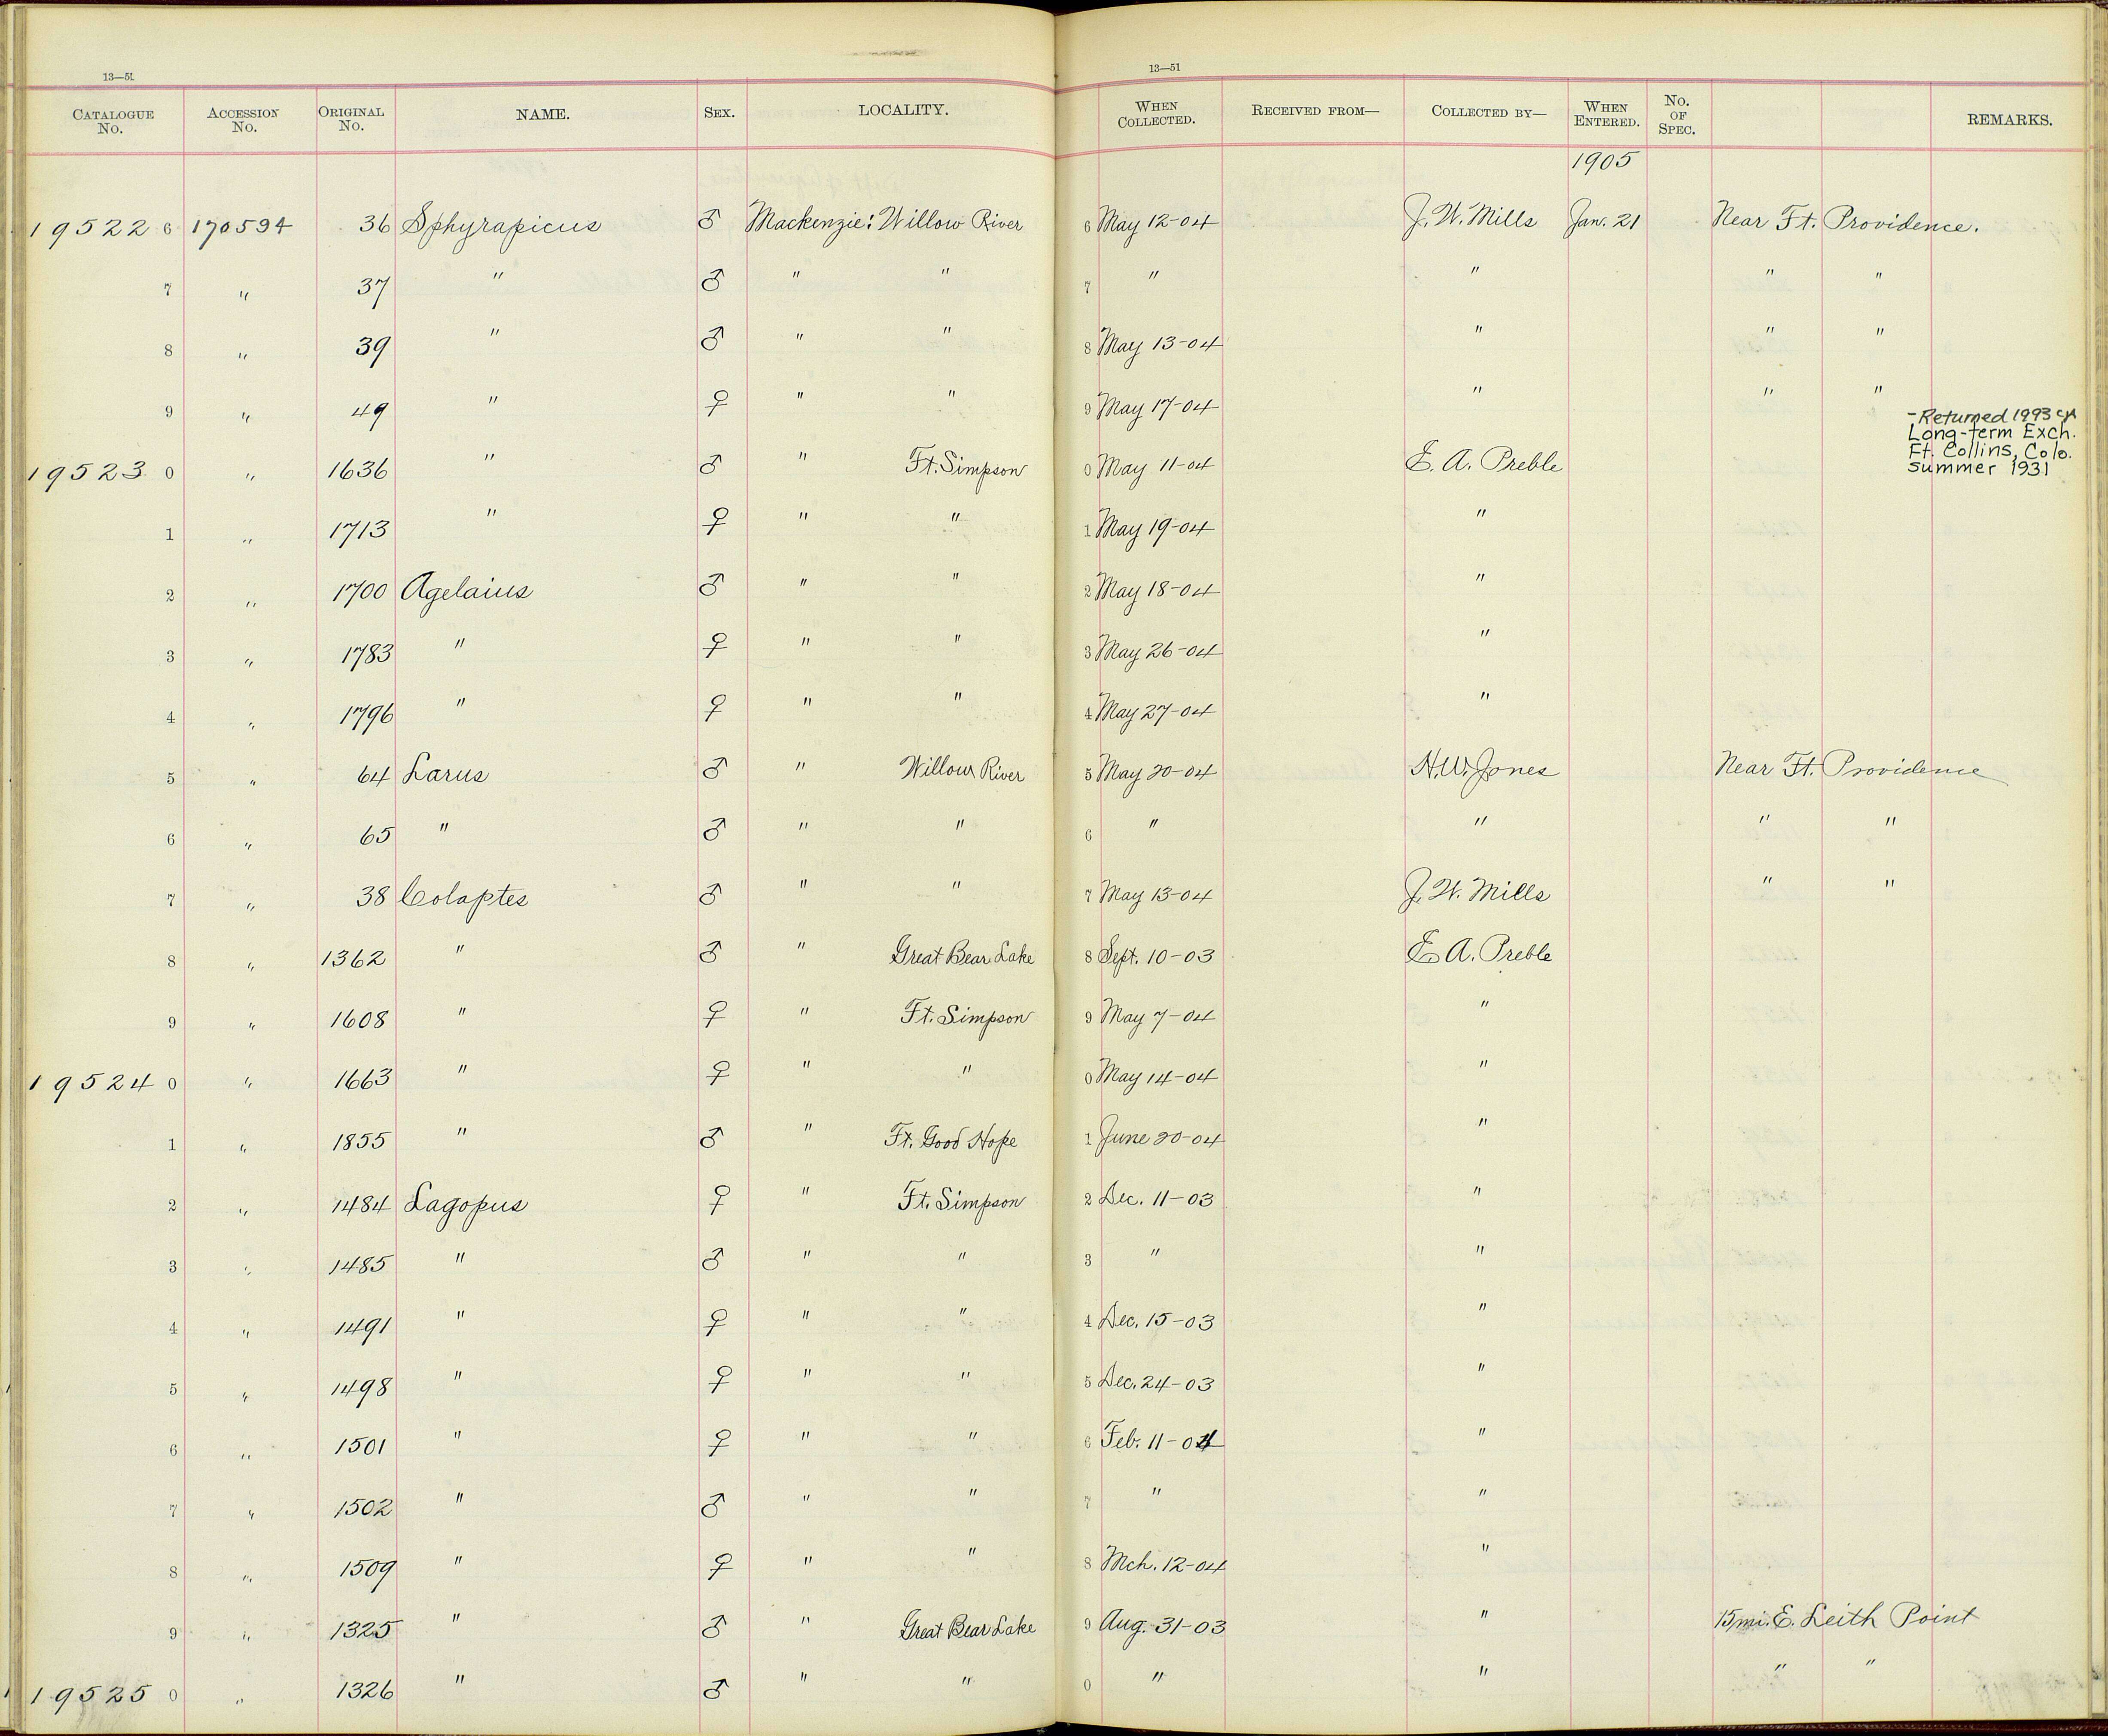 13—51 13—51
CATALOGUE No. ACCESSION No. ORIGINAL No. NAME. SEX. LOCALITY. WHEN COLLECTED. RECEIVED FROM— COLLECTED BY— WHEN ENTERED. No. OF SPEC. REMARKS.
1905
19522 6 170594 36 Sphyrapicus ♂ Mackenzie: Willow River 6 May 12-04 J. W. Mills Jan. 21 Near Ft. Providence.
7 " 37 " ♂ " " 7 " " " "
8 " 39 " ♂ " " 8 May 13-04 " " "
9 " 49 " ♀ " " 9 May 17-04 " " "
-Returned 1993
Long-term Exch.
Ft. Collins, Colo.
summer 1931
19523 0 " 1636 " ♂ " Ft. Simpson 0 May 11-04 E. A. Preble
1 " 1713 " ♀ " " 1 May 19-04 "
2 " 1700 Agelaius ♂ " " 2 May 18-04 "
3 " 1783 " ♀ " " 3 May 26-04 "
4 " 1796 " ♀ " " 4 May 27-04 "
5 " 64 Larus ♂ " Willow River 5 May 20-04 H. W. Jones Near Ft. Providence
6 " 65 " ♂ " " 6 " " " "
7 " 38 Colaptes ♂ " " 7 May 13-04 J. W. Mills " "
8 " 1362 " ♂ " Great Bear Lake 8 Sept. 10-03 E. A. Preble
9 " 1608 " ♀ " Ft. Simpson 9 May 7-04 "
19524 0 " 1663 " ♀ " " 0 May 14-04 "
1 " 1855 " ♂ " Ft. Good Hope 1 June 20-04 "
2 " 1484 Lagopus ♀ " Ft. Simpson 2 Dec. 11-03 "
3 " 1485 " ♂ " " 3 " "
4 " 1491 " ♀ " " 4 Dec. 15-03 "
5 " 1498 " ♀ " " 5 Dec. 24-03 "
6 " 1501 " ♀ " " 6 Feb. 11-04 "
7 " 1502 " ♂ " " 7 " "
8 " 1509 " ♀ " " 8 Mch. 12-04 "
9 " 1325 " ♂ " Great Bear Lake 9 Aug. 31-03 " 15 mi. E. Leith Point
19525 0 " 1326 " ♂ " " 0 " " " "